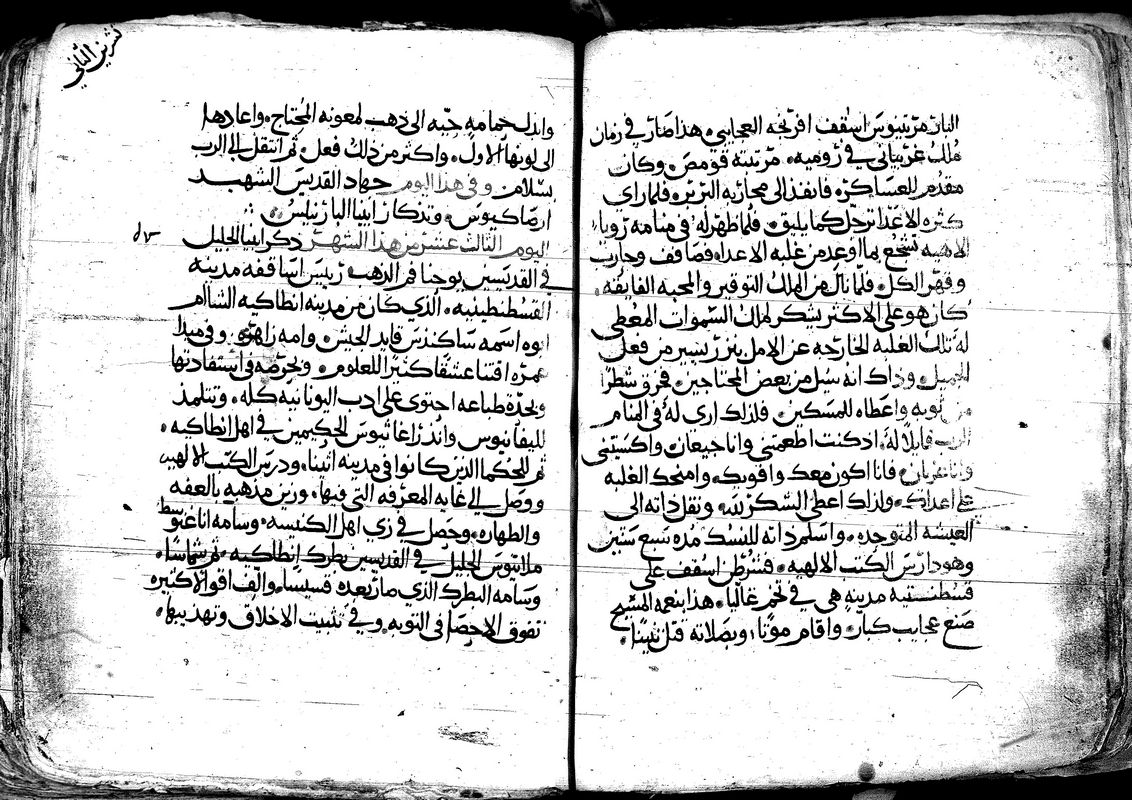 البار مرتينوس اسقف افرنجه العجايبي. هذا صار في زمان
ملك غرتياني في روميه. مرتبته قومص وكان
مقدم للعساكر. فانفذ الى محاربه البربر. فلما راى
كثره الاعدا ترجل كما يليق. فلما ظهر له في منامه رويا
الاهيه تشجع بما اوعد من غلبه الاعدا. فصافف وحارب
وقهر الكل. فلما نال من الملك التوقير والمحبه الفايقه.
كان هو على الاكثر يشكر لملك السموات المعطي
له تلك الغلبه الخارجه عن الامل بنزر يسير من فعل
الجميل. وذاك انه سيل من بعض المحتاجين. فخرق شطرا
من ثوبه واعطاه للمسكين. فلذلك اري له في المنام
الرب قايلا له. اذ كنت اطعمتني وانا جيعان. واكسيتني
وانا عريان. فانا اكون معك واقويك. وامنحك الغلبه
على اعداك. ولذلك اعطى الشكر لله. ونقل ذاته الى
العيشه المتوحده. واسلم ذاته للنسك مده سبع سنين
وهو دارس الكتب الالهيه. فشرطن اسقف على
قسطنسيه مدينه هي في تخم غاليا. هذا بنعمه المسيح
صنع عجايب كبار. واقام موتا. وبصلاته قتل تنينا.
تشرين الثاني
وابدل حمامه حيه الى ذهب لمعونه المحتاج. واعادها
الى لونها الاول. واكثر من ذلك فعل. ثم انتقل الى الرب
بسلام. وفي هذا اليوم جهاد القديس الشهيد
ارضاكيوس. وتذكار ابينا البار نيلس
اليوم الثالث عشر من هذا الشهر ذكر ابينا الجليل
في القديسين يوحنا فم الذهب رييس اساقفه مدينه
القسطنطينيه. الذي كان من مدينه انطاكيه الشام
ابوه اسمه ساكندس قايد الجيش. وامه زاهره. وفي مبدا
عمره اقتنا عشقا كثيرا للعلوم. وبحرصه في استفادتها
وبحدة طباعه احتوى على ادب اليونانيه كله. وتتلمذ
لليفانيوس واندراغاثيوس الحكيمين في اهل انطاكيه.
ثم للحكما الذين كانوا في مدينه اثينا. ودرس الكتب الالهيه
ووصل الى غايه المعرفه التي فيها. وزين مذهبه بالعفه
والطهاره. وحصل في زي اهل الكنيسه. وسامه اناغنوسطس
ملاتيوس الجليل في القديسين بطرك انطاكيه. ثم شماسا.
وسامه البطرك الذي صار بعده قسيسا. والف اقوالا كثيره
تفوق الاحصا في التوبه. وفي تثبيت الاخلاق وتهذيبها.